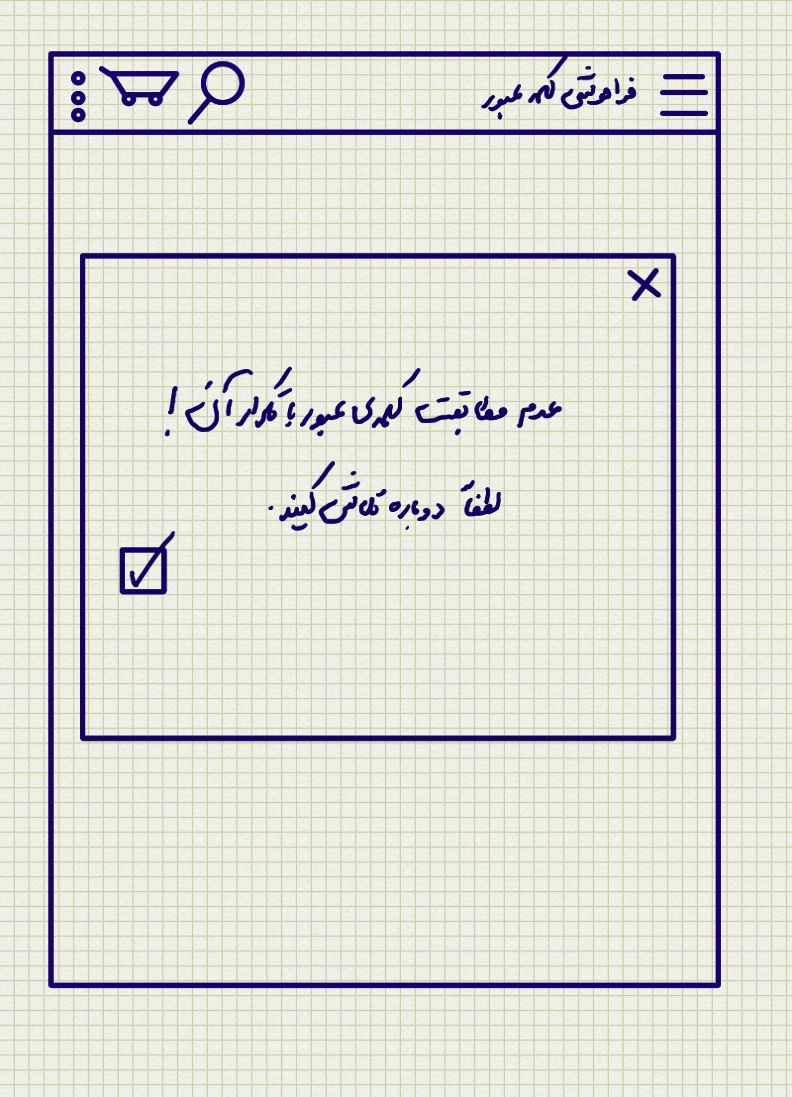 فراموشی کلمه عبور
عدم مطابقت کلمه‌ی عبور با تکرار آن !
لطفاً دوباره تلاش کنید.